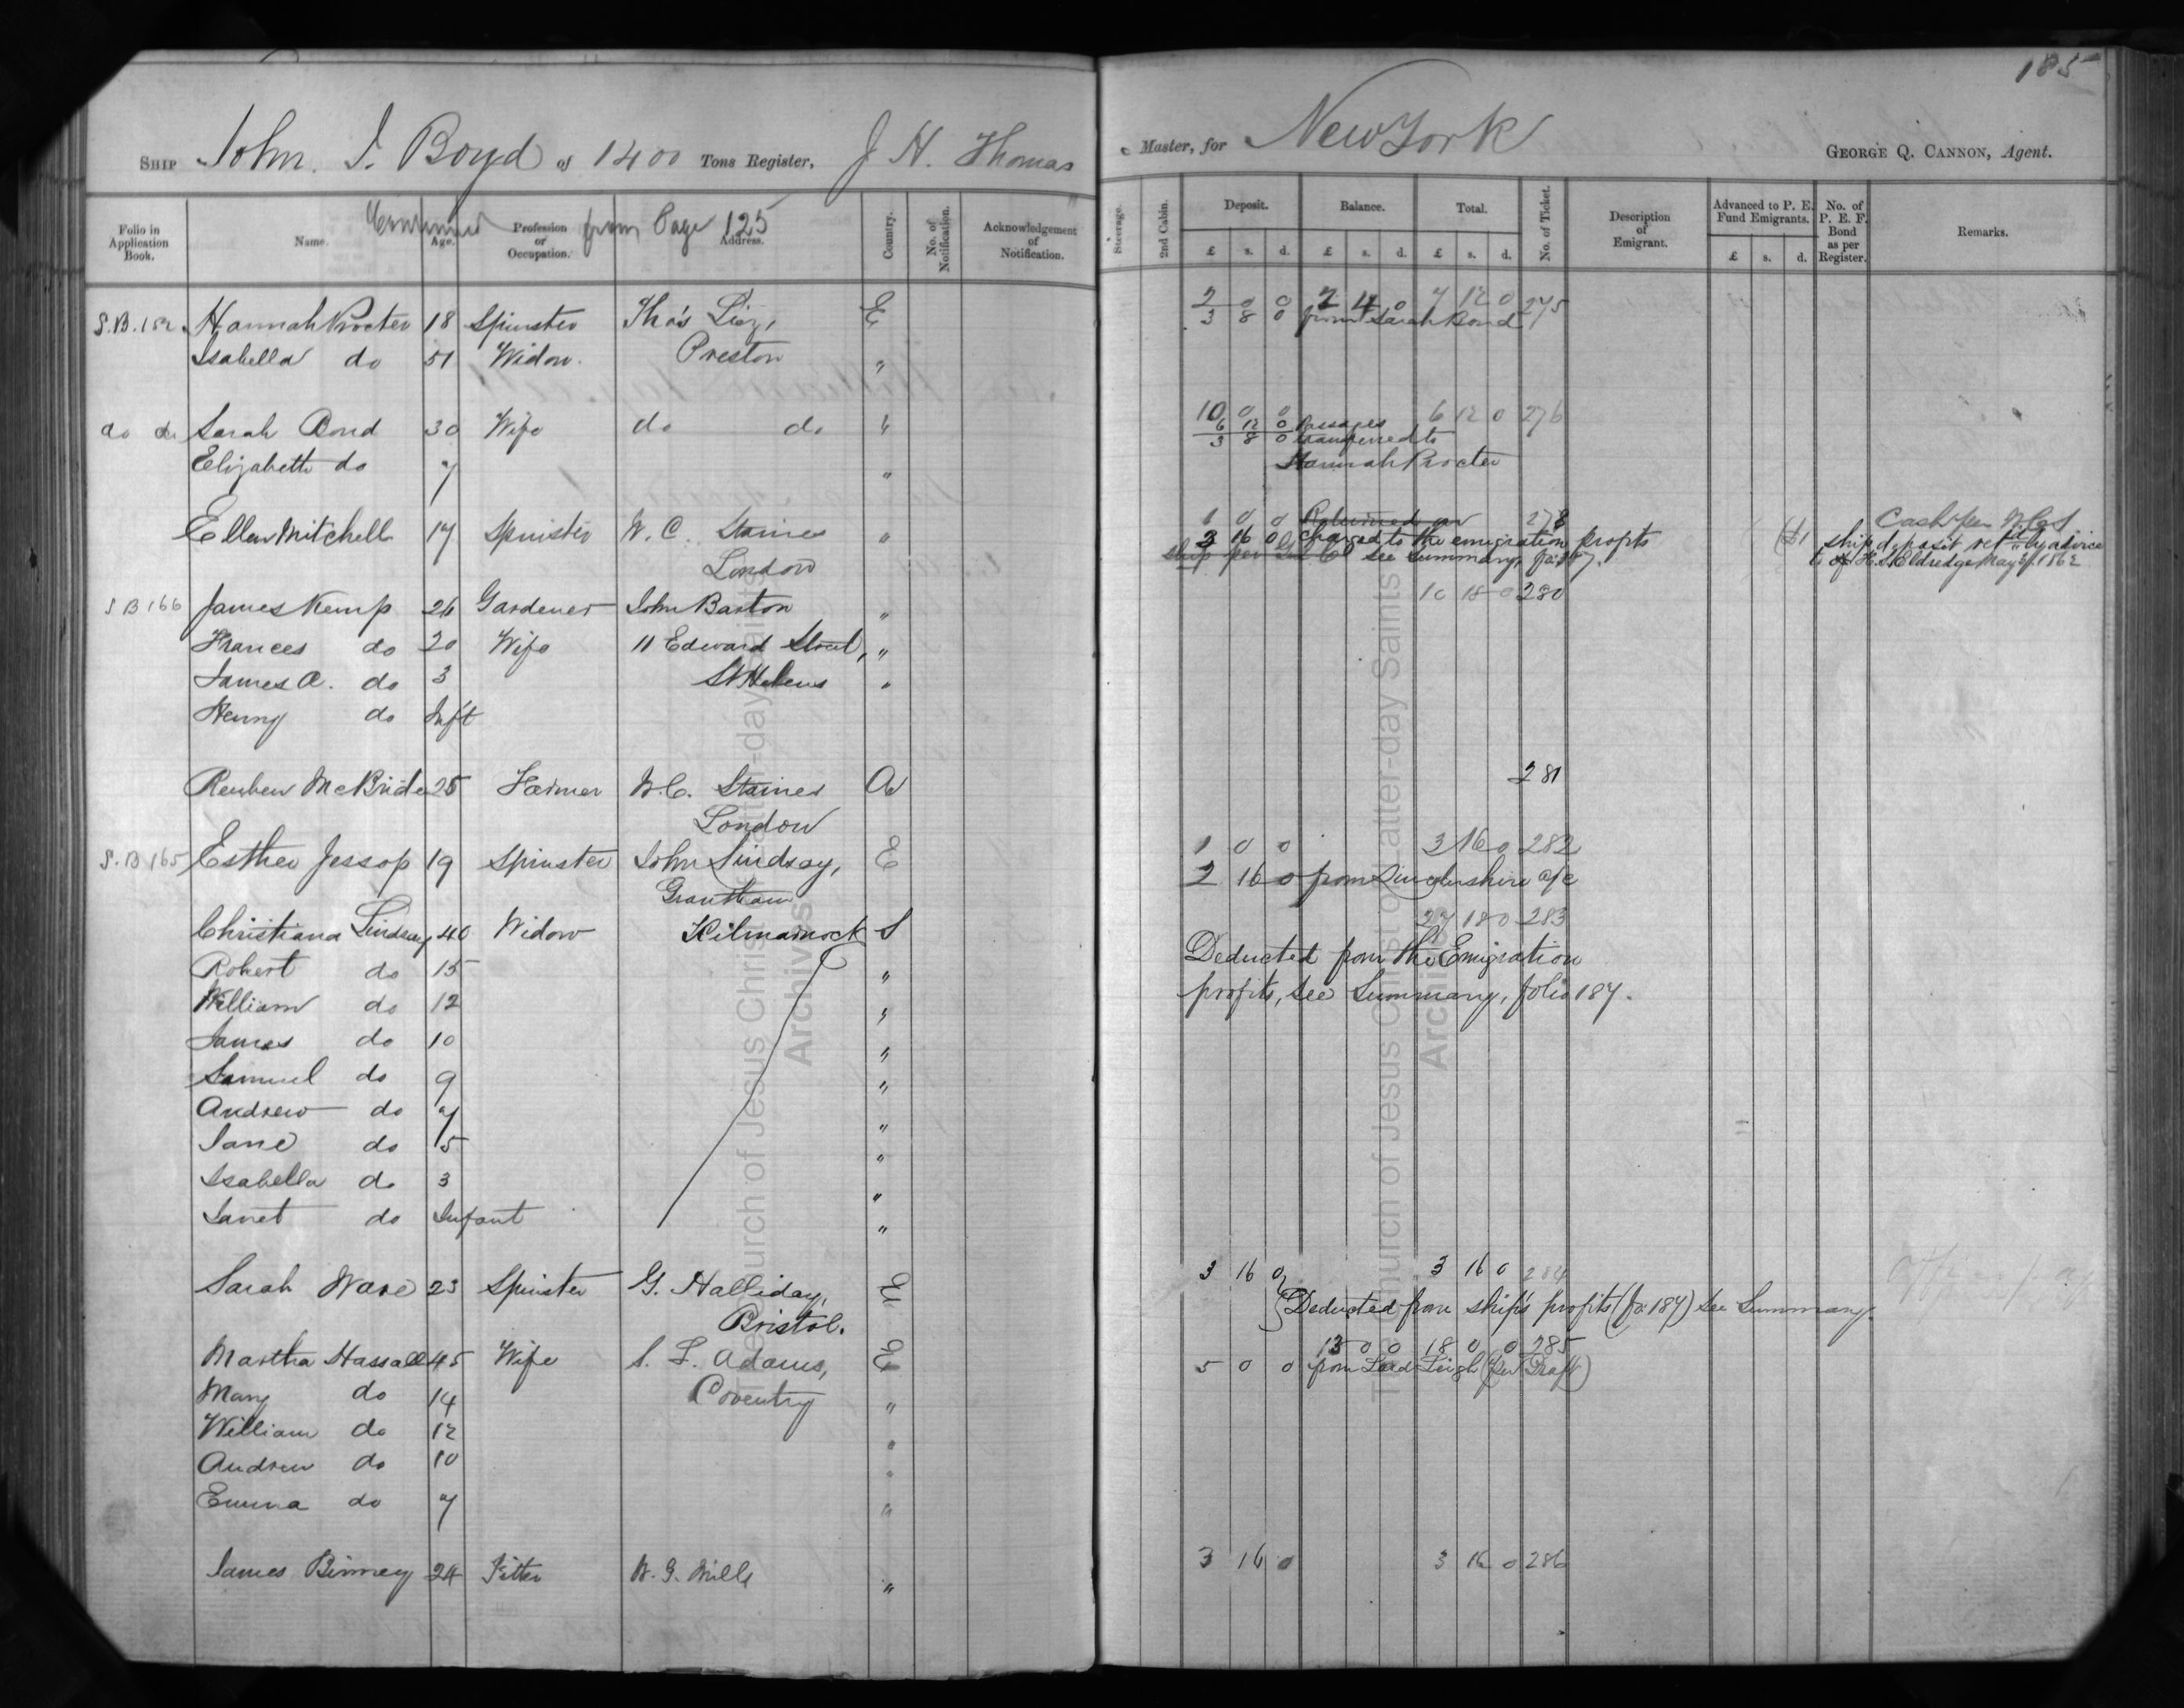 185
SHIP John J. Boyd of 1400 Tons Register, J H. Thomas Master, for New York GEORGE Q. CANNON, Agent.
Continued from Page 125
Folio in Application Book. Name. Age. Profession or Occupation. Address. Country. No. of Notification. Acknowledgement of Notification. Steerage. 2nd Cabin. Deposit. Balance. Total. No. of Ticket. Description of Emigrant. Advanced to P. E. Fund Emigrants. No. of P. E. F. Bond as per Register. Remarks.
£ s. d. £ s. d. £ s. d. £ s. d.
S.B. 182 Hannah Procter 18 Spinster Tho's Liez, E 2 0 0 2 4 0 7 12 0 275
3 8 0 from Sarah Bond
Isabella do 51 Widow. Preston "
do do Sarah Bond 30 Wife do do " 10 0 0 6 12 0 276
6 12 0 Passages
3 8 0 transferred to
Elizabeth do 7 " Hannah Procter
Ellen Mitchell 17 Spinster W. C. Staines " 1 0 0 Returned 278 Cash per W.C.S
2 16 0 Charged to the emigration profits (£1 ship deposit retd by advice
London see Summary, fo: 187. of H. S. Eldredge May 2/. 1862
S B 166 James Kemp 26 Gardener John Barton " 10 18 0 280
Frances do 20 Wife 11 Edward Street, "
James A. do 3 St Helens "
Henry do Inf't
Reuben McBride 25 Farmer W.C. Staines A 281
London
S.B 165 Esther Jessop 19 Spinster John Lindsay, E 1 0 0 3 16 0 282
Grantham 2 16 0 from Lincolnshire a/c
Christiana Lindsay 40 Widow Kilmarnock S 27 18 0 283
Robert do 15 " Deducted from the Emigration
William do 12 " profits, see Summary, folio 187.
James do 10 "
Samuel do 9 "
Andrew do 7 "
Jane do 5 "
Isabella do 3 "
Janet do Infant "
Sarah Ware 23 Spinster G. Halliday, E 3 16 0 3 16 0 284
Bristol. Deducted from ship's profits (fo: 187) see Summary.
Martha Hassall 45 Wife S. L. Adams, E 13 0 0 18 0 0 285
5 0 0 from Lord Leigh (per Draft)
Mary do 14 Coventry "
William do 12 "
Andrew do 10 "
Emma do 7 "
James Binney 24 Fitter W. G. Mills " 3 16 0 3 16 0 286
The Church of Jesus Christ of Latter-day Saints
Archives
The Church of Jesus Christ of Latter-day Saints
Archives